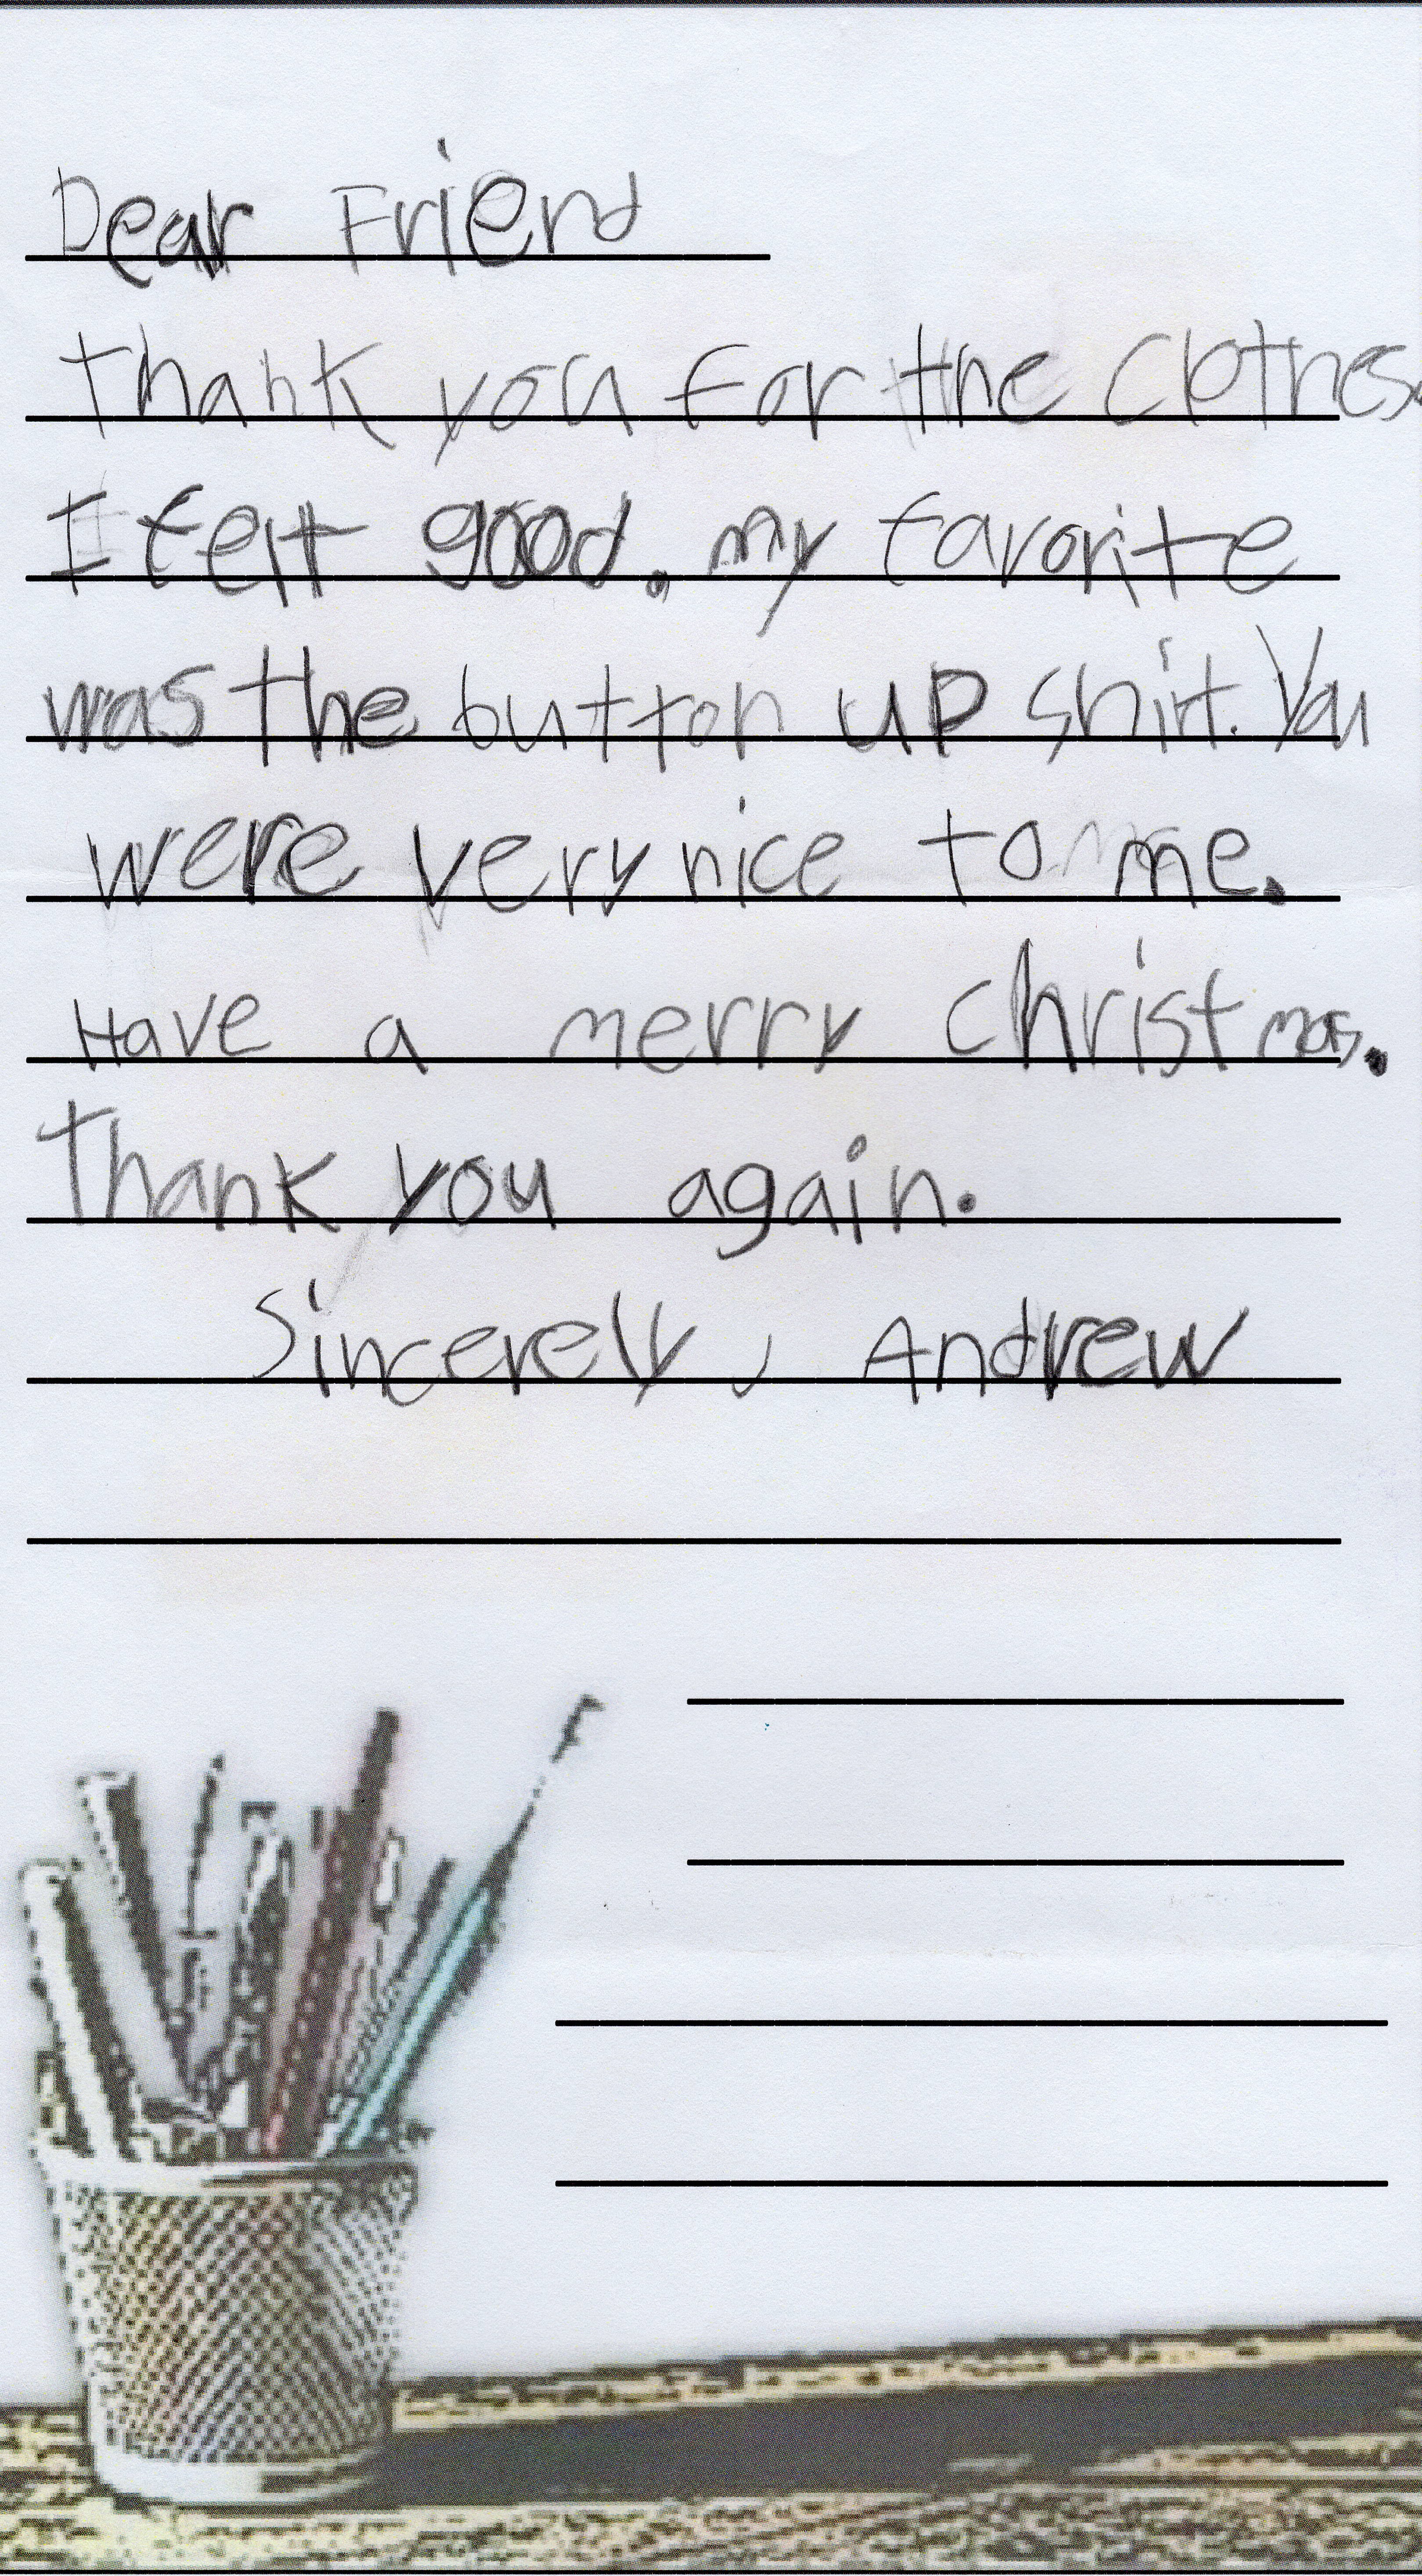 Dear Friend
Thank you for the Clothes.
I felt good. my favorite
was the button up shirt. You
were very nice to me.
Have a merry christmas.
Thank you again.
Sincerely, Andrew